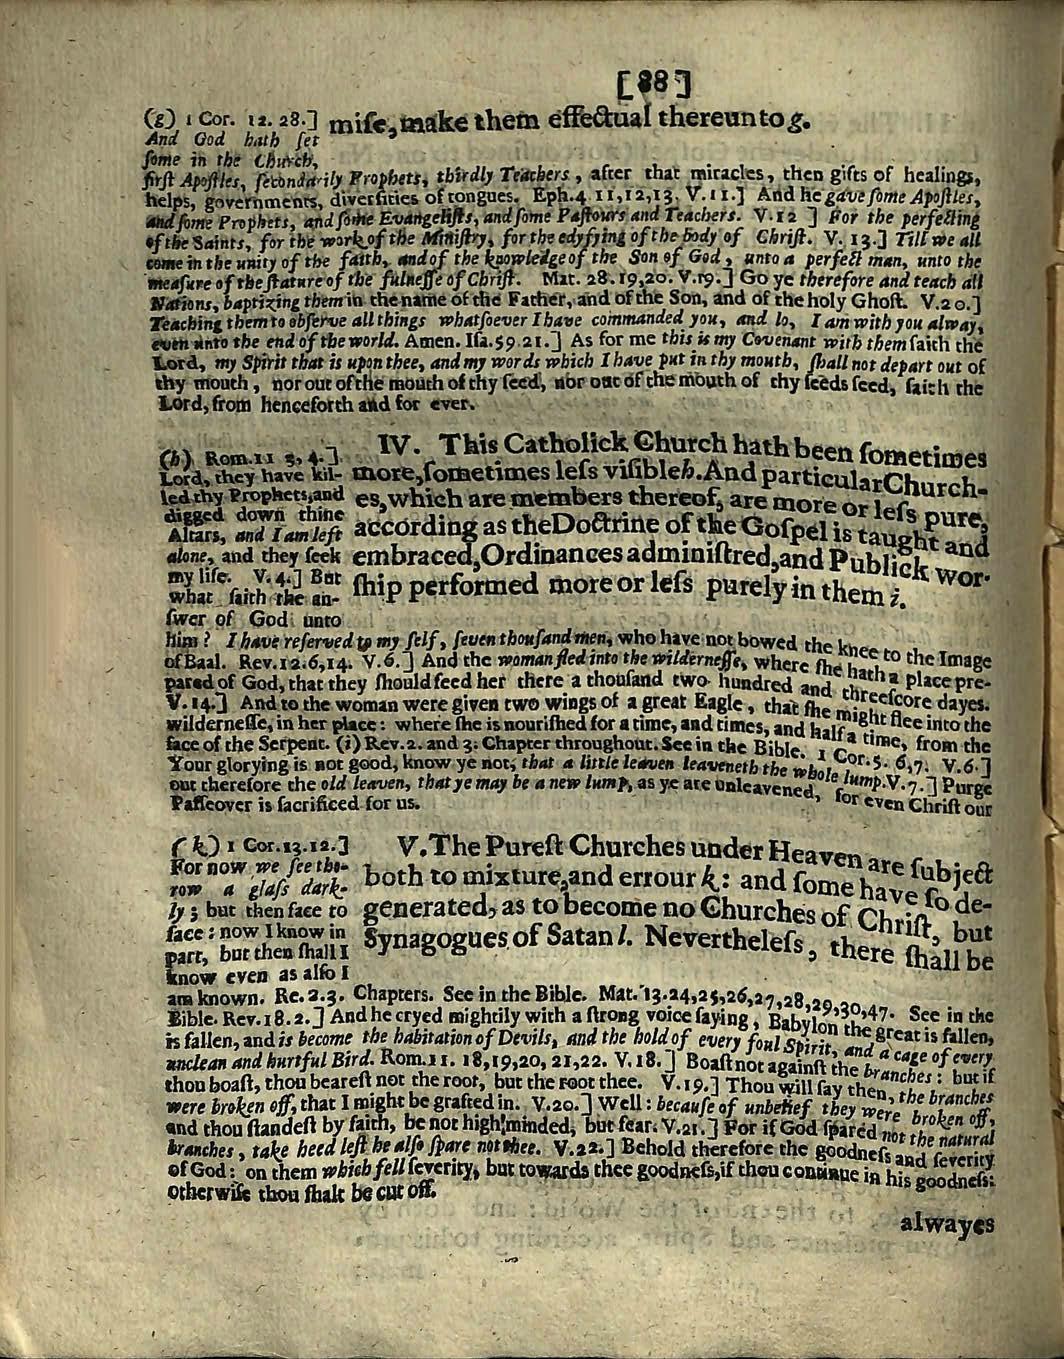 [88]
miſe, make them effectual thereunto g.
(g) 1 Cor. 12. 28.]
And God hath ſet
ſome in the Church,
firſt Apoſtles, ſecondarily Prophets, thirdly Teachers, after that miracles, then gifts of healings,
helps, governments, diverſities of tongues. Eph.4. 11,12,13. V.11.] And he gave ſome Apoſtles,
and ſome Prophets, and ſome Evangeliſts, and ſome Paſtours and Teachers. V.12 ] For the perfecting
of the Saints, for the work of the Miniſtry, for the edyfying of the body of Chriſt. V. 13.] Till we all
come in the unity of the faith, and of the knowledge of the Son of God, unto a perfect man, unto the
meaſure of the ſtature of the fulneſſe of Chriſt. Mat. 28. 19,20. V.19.] Go ye therefore and teach all
Nations, baptizing them in the name of the Father, and of the Son, and of the holy Ghoſt. V.20.]
Teaching them to obſerve all things whatſoever I have commanded you, and lo, I am with you alway,
even unto the end of the world. Amen. Iſa.59.21.] As for me this is my Covenant with them ſaith the
Lord, my Spirit that is upon thee, and my words which I have put in thy mouth, ſhall not depart out of
thy mouth, nor out of the mouth of thy ſeed, nor out of the mouth of thy ſeeds ſeed, ſaith the
Lord, from henceforth and for ever.
IV. This Catholick Church hath been ſometimes
more, ſometimes leſs viſible h. And particular Church-
es, which are members thereof, are more or leſs pure,
according as the Doctrine of the Goſpel is taught and
embraced, Ordinances adminiſtred, and Publick wor-
ſhip performed more or leſs purely in them i.
(h) Rom.11 3, 4.]
Lord, they have kil-
led thy Prophets, and
digged down thine
Altars, and I am left
alone, and they ſeek
my life. V.4.] But
what ſaith the an-
ſwer of God unto
him? I have reſerved to my ſelf, ſeven thouſand men, who have not bowed the knee to the Image
of Baal. Rev.12.6,14. V.6.] And the woman fled into the wilderneſſe, where ſhe hath a place pre-
pared of God, that they ſhould feed her there a thouſand two hundred and threeſcore dayes.
V.14.] And to the woman were given two wings of a great Eagle, that ſhe might flee into the
wilderneſſe, in her place: where ſhe is nouriſhed for a time, and times, and half a time, from the
face of the Serpent. (i) Rev.2. and 3. Chapter throughout. See in the Bible. 1 Cor.5. 6,7. V.6.]
Your glorying is not good, know ye not, that a little leaven leaveneth the whole lump. V.7.] Purge
out therefore the old leaven, that ye may be a new lump, as ye are unleavened, for even Chriſt our
Paſſeover is ſacrificed for us.
V. The Pureſt Churches under Heaven are ſubject
both to mixture, and errour k: and ſome have ſo de-
generated, as to become no Churches of Chriſt, but
Synagogues of Satan l. Nevertheleſs, there ſhall be
(k) 1 Cor.13.12.]
For now we ſee tho-
row a glaſs dark-
ly; but then face to
face: now I know in
part, but then ſhall I
know even as alſo I
am known. Re.2.3. Chapters. See in the Bible. Mat. 13.24,25,26,27,28,29,30,47. See in the
Bible. Rev.18.2.] And he cryed mightily with a ſtrong voice ſaying, Babylon the great is fallen,
is fallen, and is become the habitation of Devils, and the hold of every foul Spirit, and a cage of every
unclean and hurtful Bird. Rom.11. 18,19,20, 21,22. V.18.] Boaſt not againſt the branches: but if
thou boaſt, thou beareſt not the root, but the root thee. V.19.] Thou will ſay then, the branches
were broken off, that I might be grafted in. V.20.] Well: becauſe of unbelief they were broken off,
and thou ſtandeſt by faith, be not high minded, but fear. V.21.] For if God ſpared not the natural
branches, take heed leſt he alſo ſpare not thee. V.22.] Behold therefore the goodneſs and ſeverity
of God: on them which fell ſeverity, but towards thee goodneſs, if thou continue in his goodneſs:
otherwiſe thou ſhalt be cut off.
alwayes